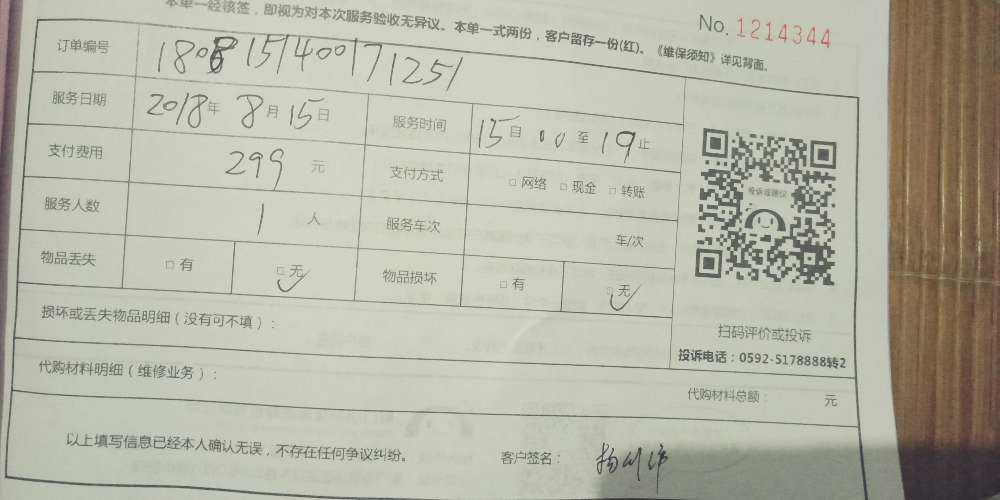 本单一经核签，即视为对本次服务验收无异议。本单一式两份，客户留存一份(红)。《维保须知》详见背面。
No. 1214344
订单编号 1808151400171251
服务日期 2018年 8月 15日 服务时间 15自 00 至 19 止
支付费用 299 元 支付方式 □ 网络 □ 现金 □ 转账
服务人数 1 人 服务车次 车/次
物品丢失 □ 有 □ 无 物品损坏 □ 有 □ 无
投诉或建议
扫码评价或投诉
投诉电话：0592-5178888转2
损坏或丢失物品明细（没有可不填）：
代购材料明细（维修业务）： 代购材料总额： 元
以上填写信息已经本人确认无误，不存在任何争议纠纷。 客户签名：